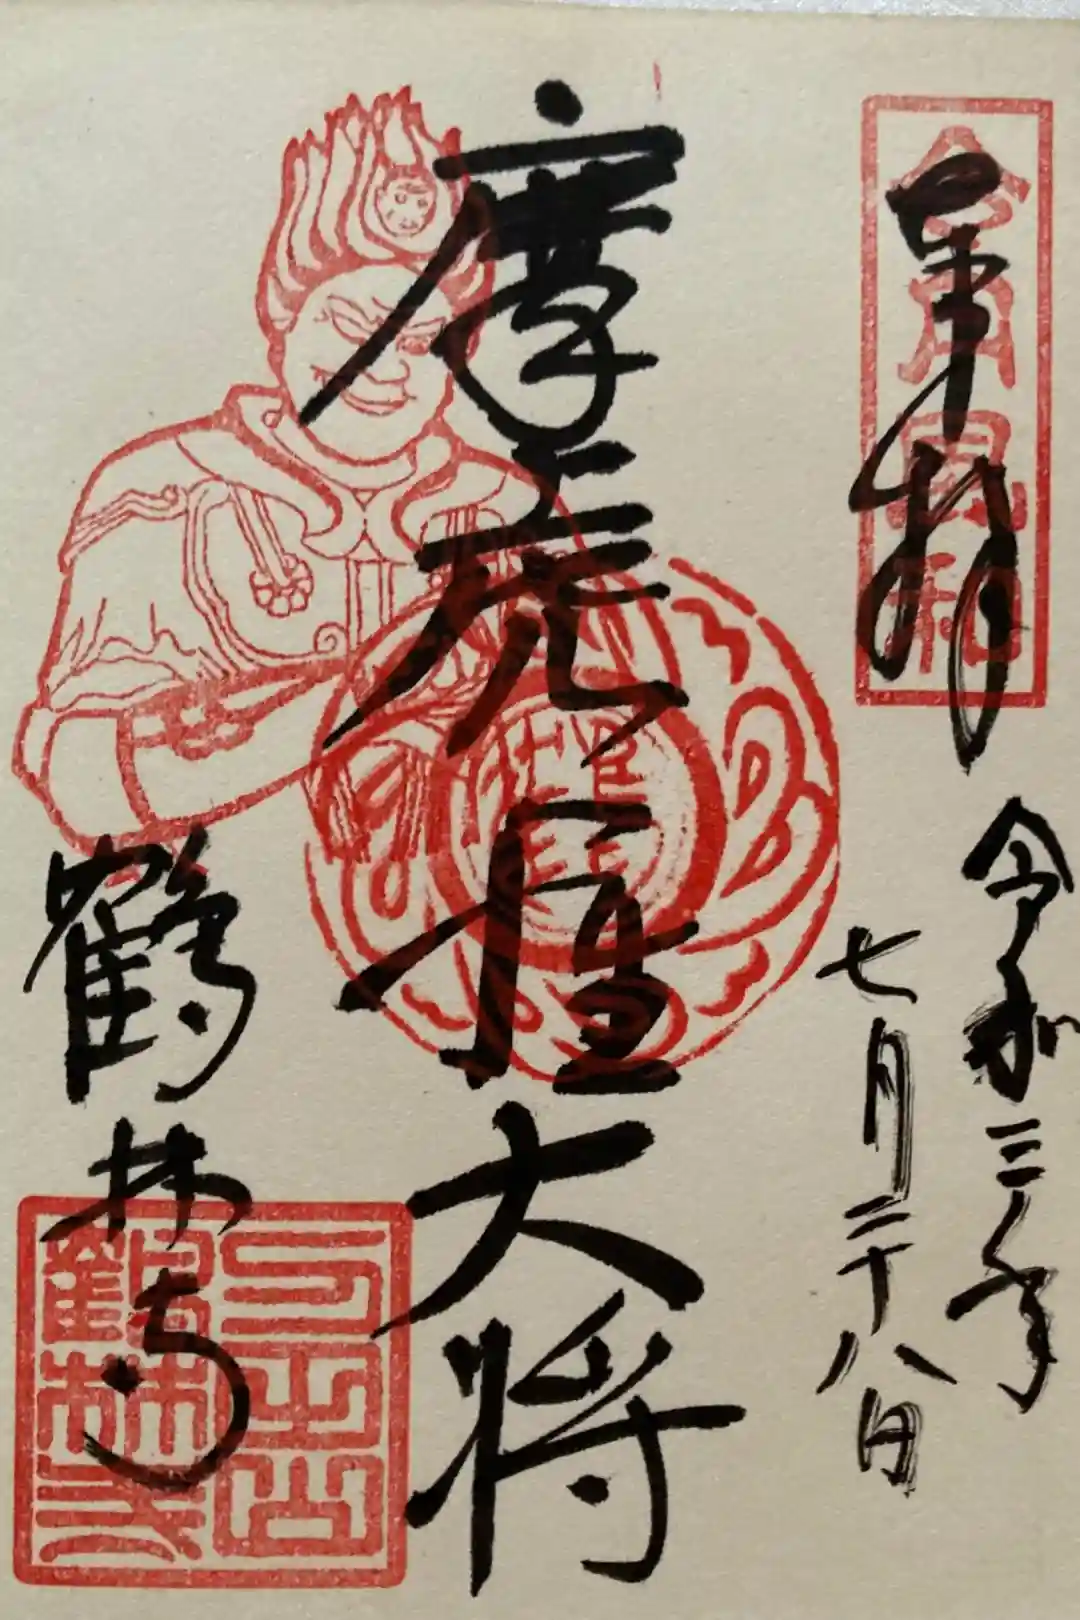 奉拝
令和三年
七月二十八日
摩虎羅大将
鶴林寺
刀田山
鶴林寺